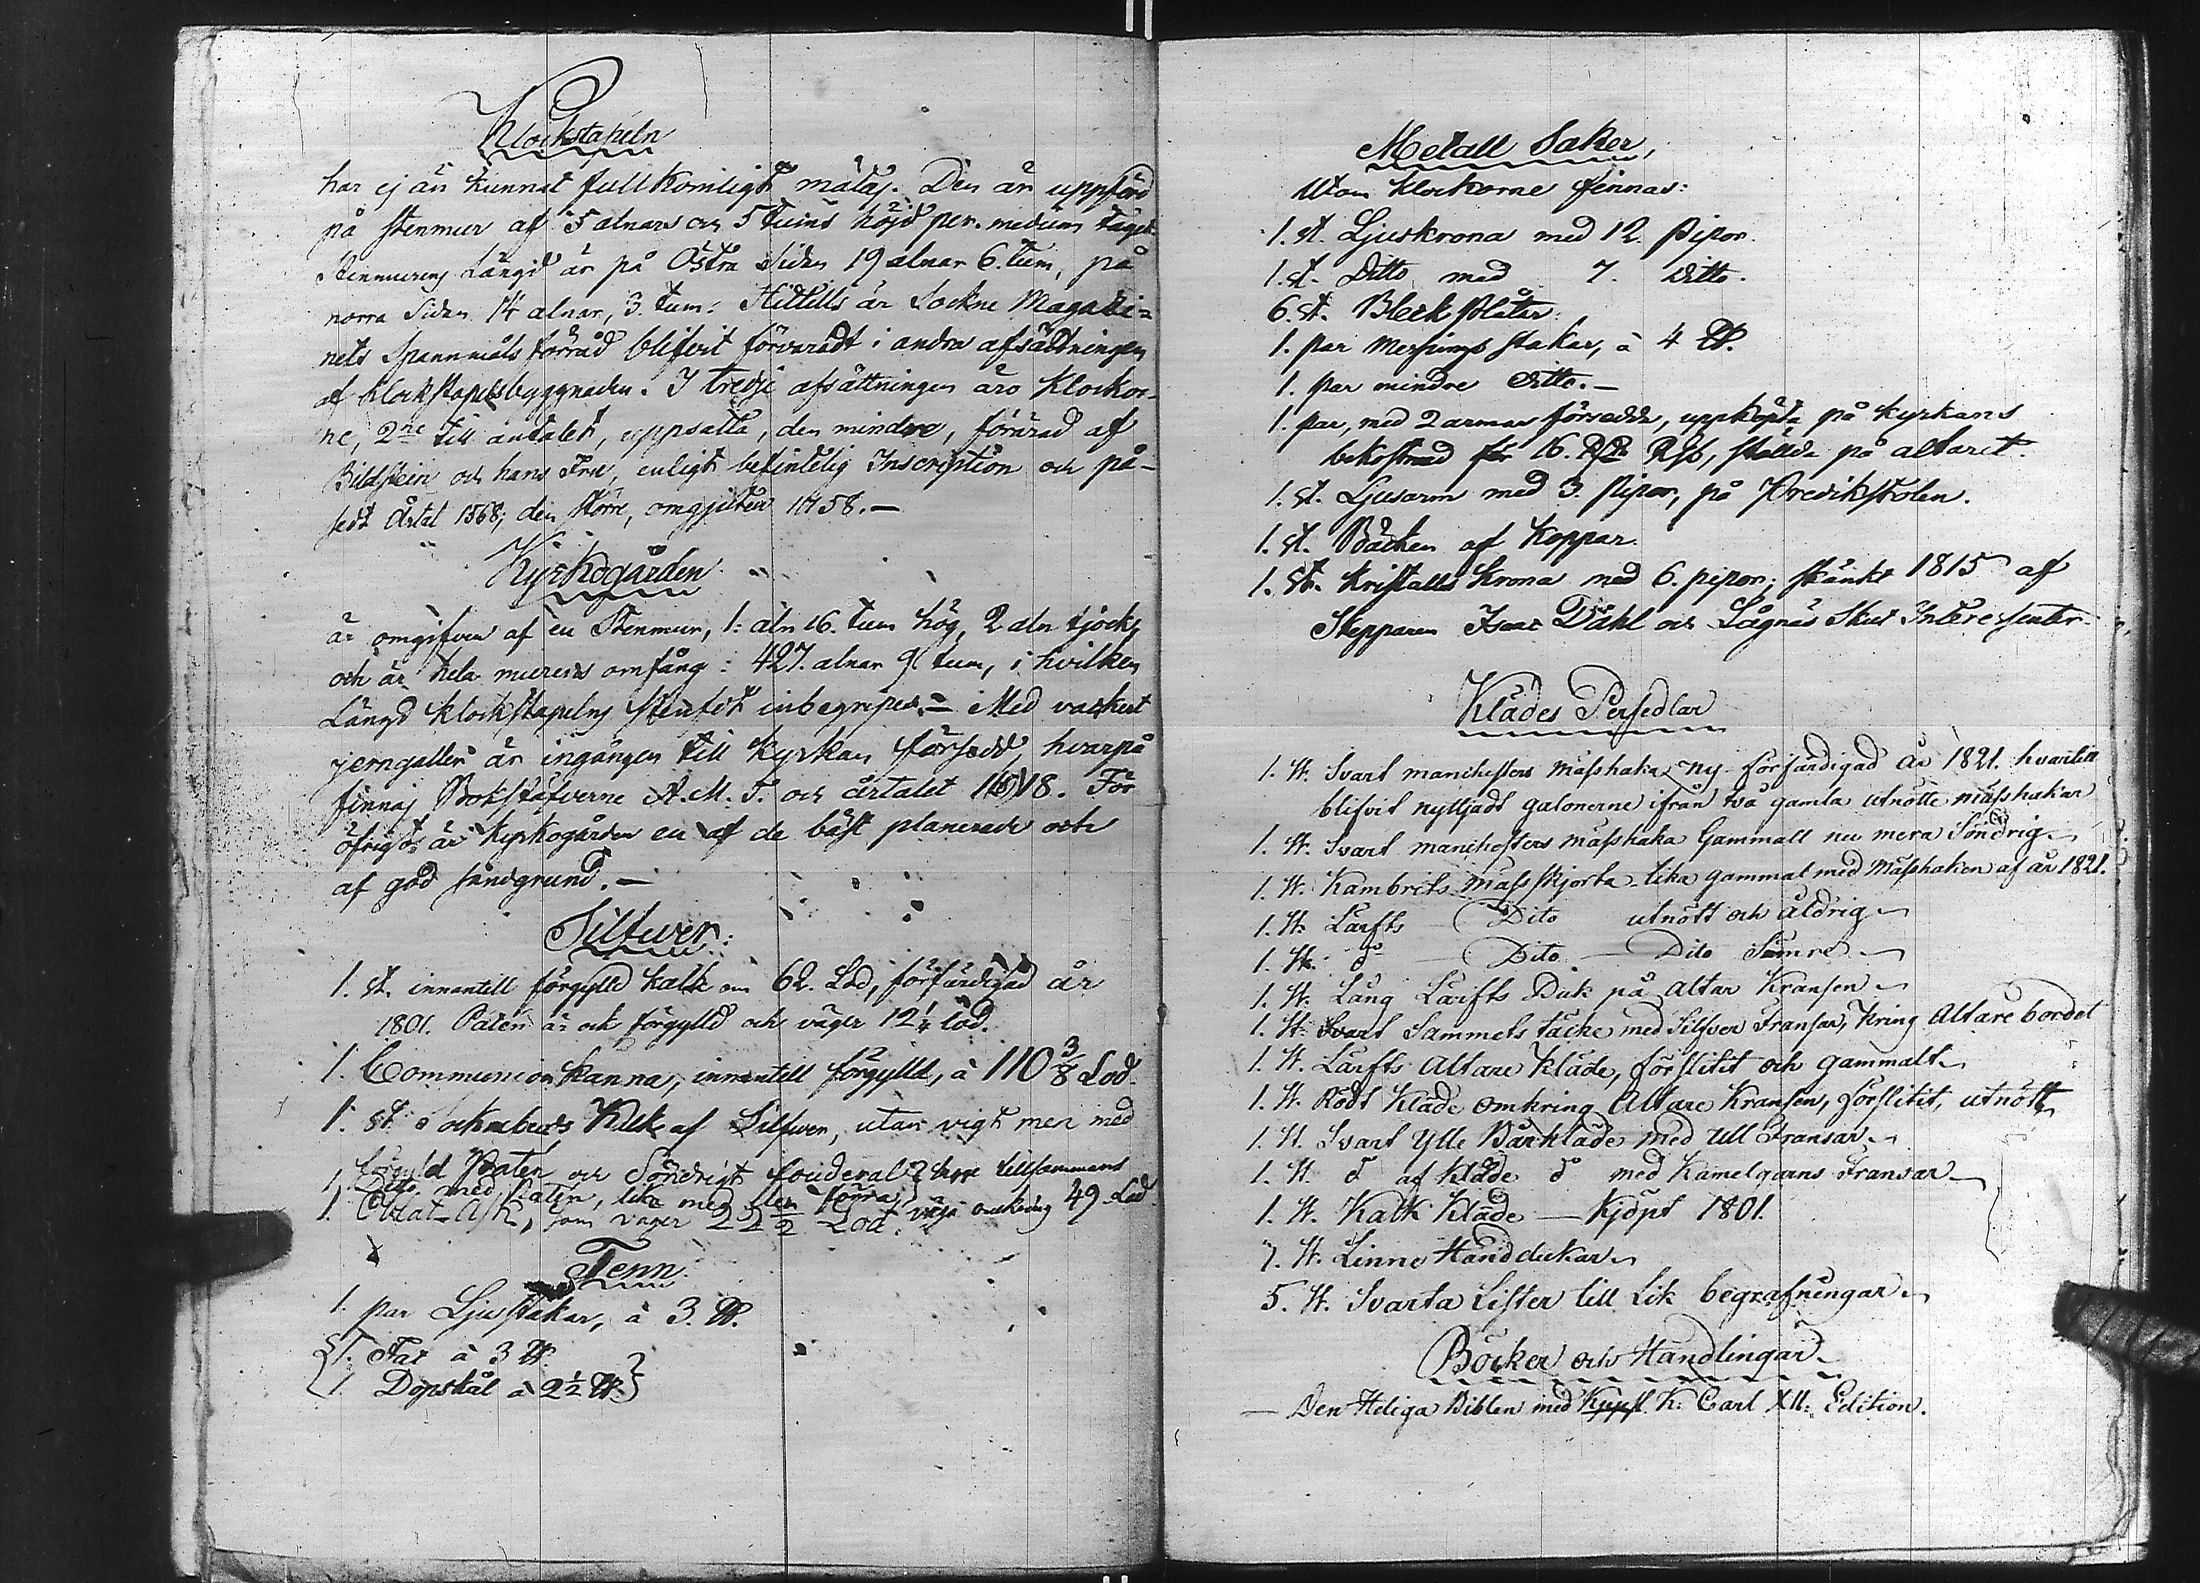 Klockstapeln
har ej än kunnat fullkomligt mätas. Den är uppförd
på stenmur af 5 alnars och 5 tums höjd per medium taget.
Stenmurens Längd är på Östra Sidan 19 alnar 6. tum, på
norra Sidan 14 alnar, 3. tum. Hittills är Sockne Magazi-
nets Spannmåls förråd blifvit förvaradt i andra afsättningen
af klockstapelsbyggnaden. I tredje afsättningen äro Klockor-
ne, 2ne till antalet, uppsatta, den mindre, förärad af
Bildstein och hans Fru, enligt befintelig Inscription och på-
sedt Årtal 1568; den större, omgjuten 1758.—
Kyrkogården
är omgifven af en Stenmur, 1. aln 16. tum hög, 2 aln tjock,
och är hela murens omfång: 427. alnar 9. tum, i hvilken
Längd klockstapelns stenfot inbegripes.— Med vackert
jerngaller är ingången till Kyrkan försedd, hvarpå
finnas Bokstäfverne A. M. S. och årtalet För
öfrigt är Kyrkogården en af de bäst planerade och
af god sandgrund.—
Silfwer:
1. st. innantill förgylld kalk om 62. Lod, förfärdigad år
1801. Paten är ock förgylld och väger 12¼ lod.
1. Communion kanna, innantill förgylld, à 110 3/8 Lod.
1. st Sockenbuds Kalk af Silfwer, utan vigt men med
förgyld Paten och Söndrigt fouderal
1. Ditto med Paten, lika med den förra, 2 hvar tillsammans väga omkring 49 Lod
1. Oblat-Ask, som väger 22½ Lod.
Tenn.
1. par Ljusstakar, à 3. ℔.
1. Fat à 3 ℔.
1. Dopskål à 2½ ℔.
Metall Saker,
Utom klockorne finnas:
1. st. Ljuskrona med 12. Pipor.
1. st. Ditto med 7. ditto.
6. st. Bleck Plåtar.
1. par Messings stakar, à 4 ℔.
1. par mindre ditto.—
1. par, med 2 armar försedde, uppköpte på kyrkans
bekostnad för 16. Rdr Rgs, stälde på altaret.
1. st. Ljusarm med 3. pipor, på Predikstolen.
1. st. Bäcken af Koppar.
1. st. Kristalls Krona med 6. pipor; skänkt 1815 af
Skepparen Isac Dahl och Lågnäs Skut Interessenter.
Klädes Persedlar
1. st. Svart manchesters Mässhaka, ny förfärdigad År 1821. hvartill
blifvit nyttjadt galonerne ifrån två gamla utnötte mässhakar
1. st. Svart manchesters mässhaka Gammall nu mera Söndrig
1. st. Kambrits Mässskjorta lika gammal med Mässhaken af år 1821.
1. st. Lärfts Dito utnött och åldrig
1. st. do — Dito — Dito Sämre
1. st. Lång Lärfts Duk på altar Kransen
1. st. Svart Sammets täcke med Silfver Fransar, Kring Altare bordet
1. st. Lärfts Altare kläde, förslitit och gammalt
1. st. Rödt Kläde omkring Altare Kransen, förslitit, utnött
1. st. Svart Ylle Bårkläde med Ull Fransar
1. st. do af Kläde do med Kamelgarns Fransar
1. st. Kalk Kläde — Kjöpt 1801.
7. st. Linne Handdukar
5. st. Svarta Lister till Lik begrafningar
Böcker och Handlingar
— Den Heliga Biblen med K. Carl XII: Edition.